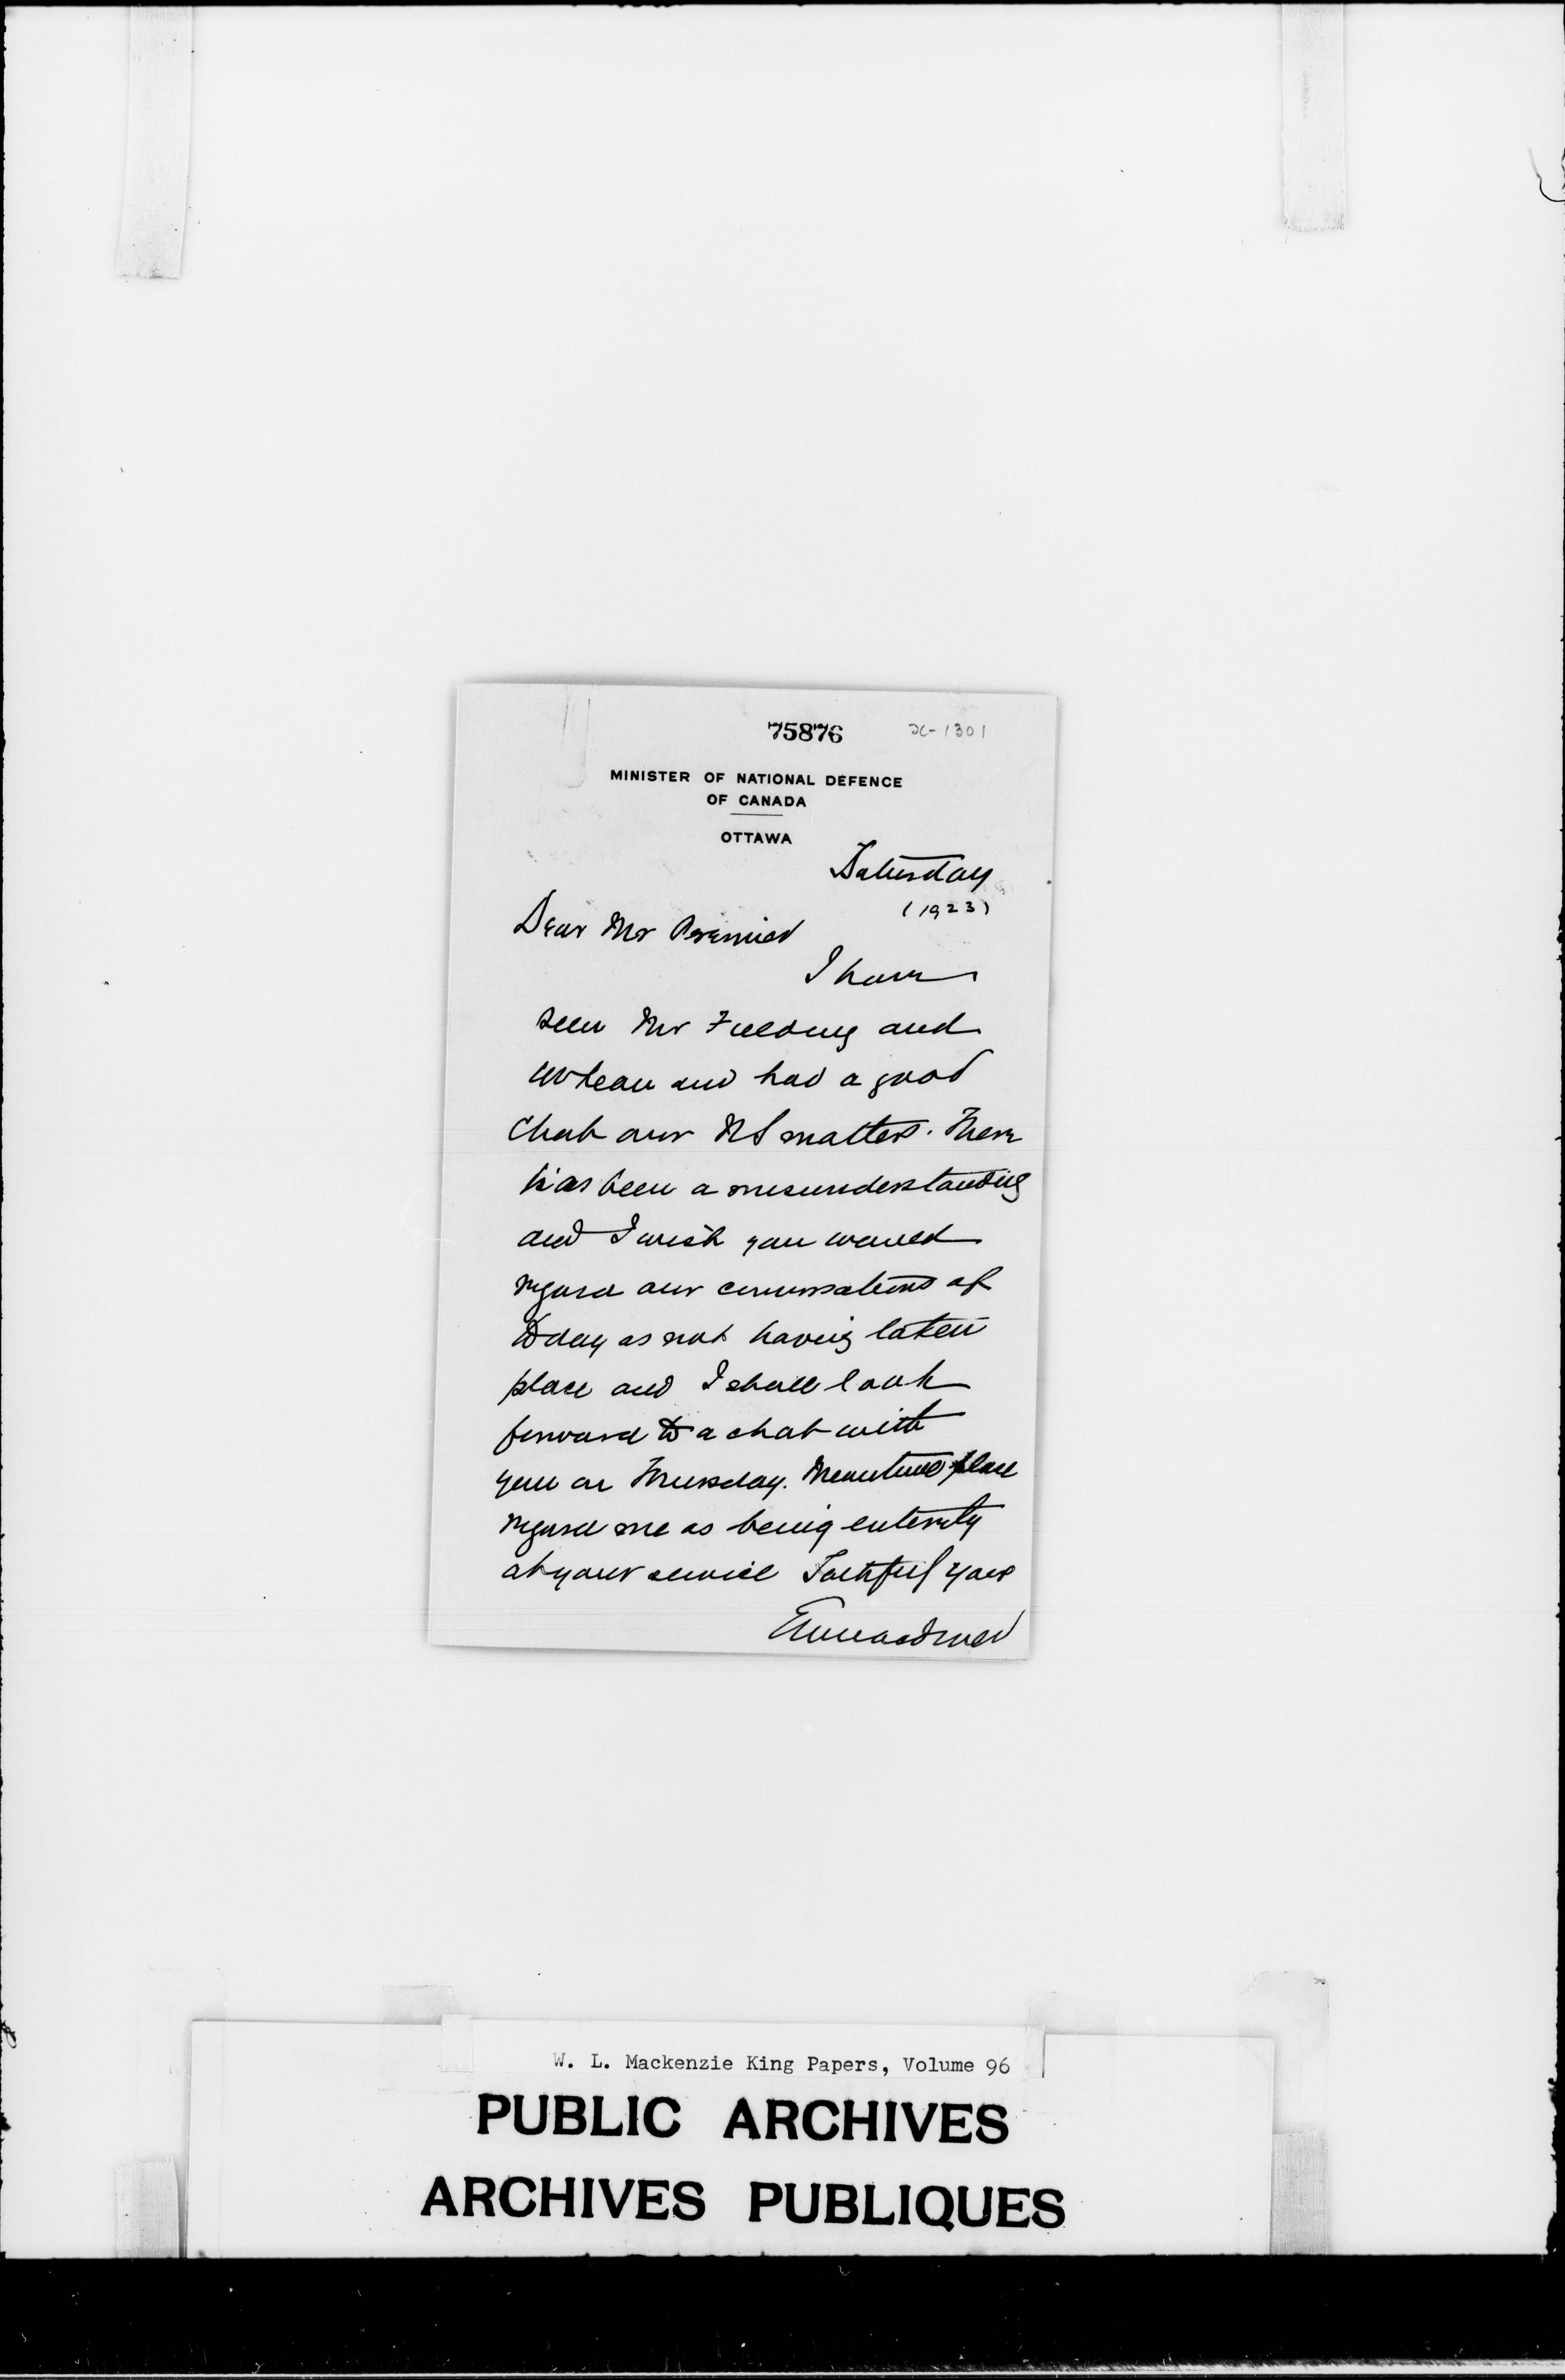 75876
2C-1301
MINISTER OF NATIONAL DEFENCE
OF CANADA
OTTAWA
Saturday
(1923)
Dear Mr Premier
I have
seen Mr Fielding and
and had a good
chat over NS matters. There
has been a misunderstanding
and I wish you would
regard our conversations of
today as not having taken
place and I shall look
forward to a chat with
you on Thursday. Meantime please
regard me as being entirely
at your service Faithful yours
W. L. Mackenzie King Papers, Volume 96
PUBLIC ARCHIVES
ARCHIVES PUBLIQUES